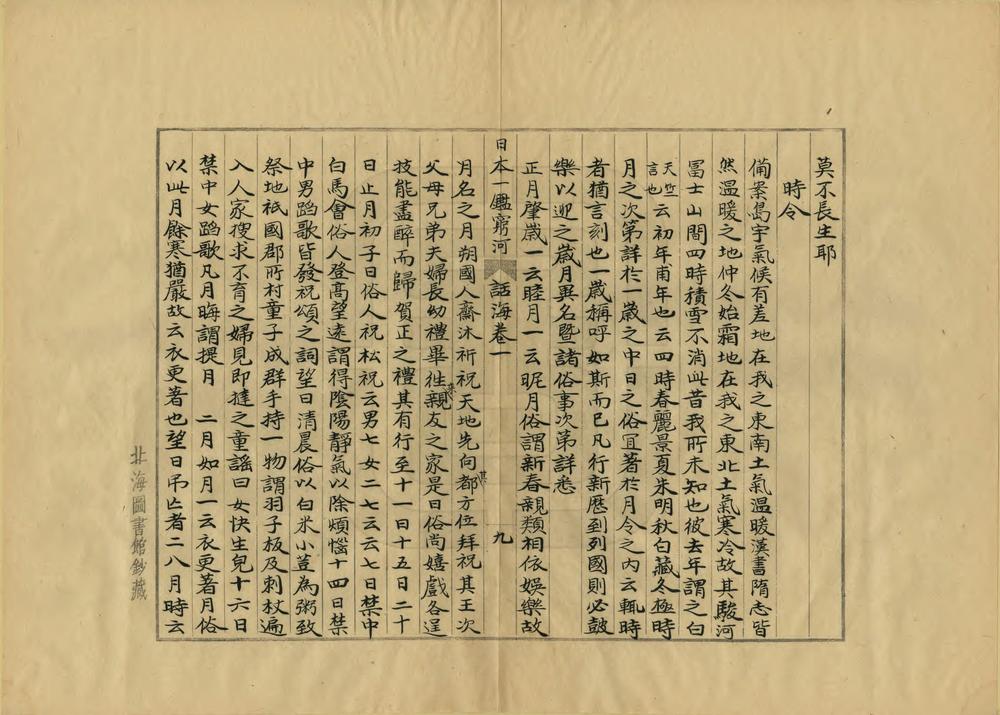 莫不長生耶
時令
備案島宇氣候有差地在我之東南土氣温暖漢書隋志皆
然温暖之地仲冬始霜地在我之東北土氣寒冷故其駿河
冨士山間四時積雪不消此昔我所未知也彼去年謂之白
天竺言也云初年甫年也云四時春麗景夏朱明秋白藏冬極時
月之次第詳於一歲之中日之俗宜著於月令之内云輒時
者猶言刻也一歲稱呼如斯而已凡行新曆到列國則必鼓
樂以迎之歲月異名暨諸俗事次第詳悉
正月肇歲一云睦月一云昵月俗謂新春親類相依娛樂故
日本一鑑窮河 話海卷一 九
月名之月朔國人齋沐祈祝天地先向其都方位拜祝其王次
父母兄弟夫婦長幼禮畢徃來親友之家是日俗尚嬉戲各逞
技能盡醉而歸賀正之禮其有行至十一日十五日二十
日止月初子日俗人祝松祝云男七女二七云云七日禁中
白馬會俗人登高望遠謂得陰陽靜氣以除煩惱十四日禁
中男蹈歌皆發祝頌之詞望日清晨俗以白米小荳為粥致
祭地祇國郡所村童子成群手持一物謂羽子板及刺杖遍
入人家搜求不育之婦見即撻之童謠曰女快生兒十六日
禁中女蹈歌凡月晦謂提月 二月如月一云衣更著月俗
以此月餘寒猶嚴故云衣更著也望日吊亡者二八月時云
北海圖書館鈔藏